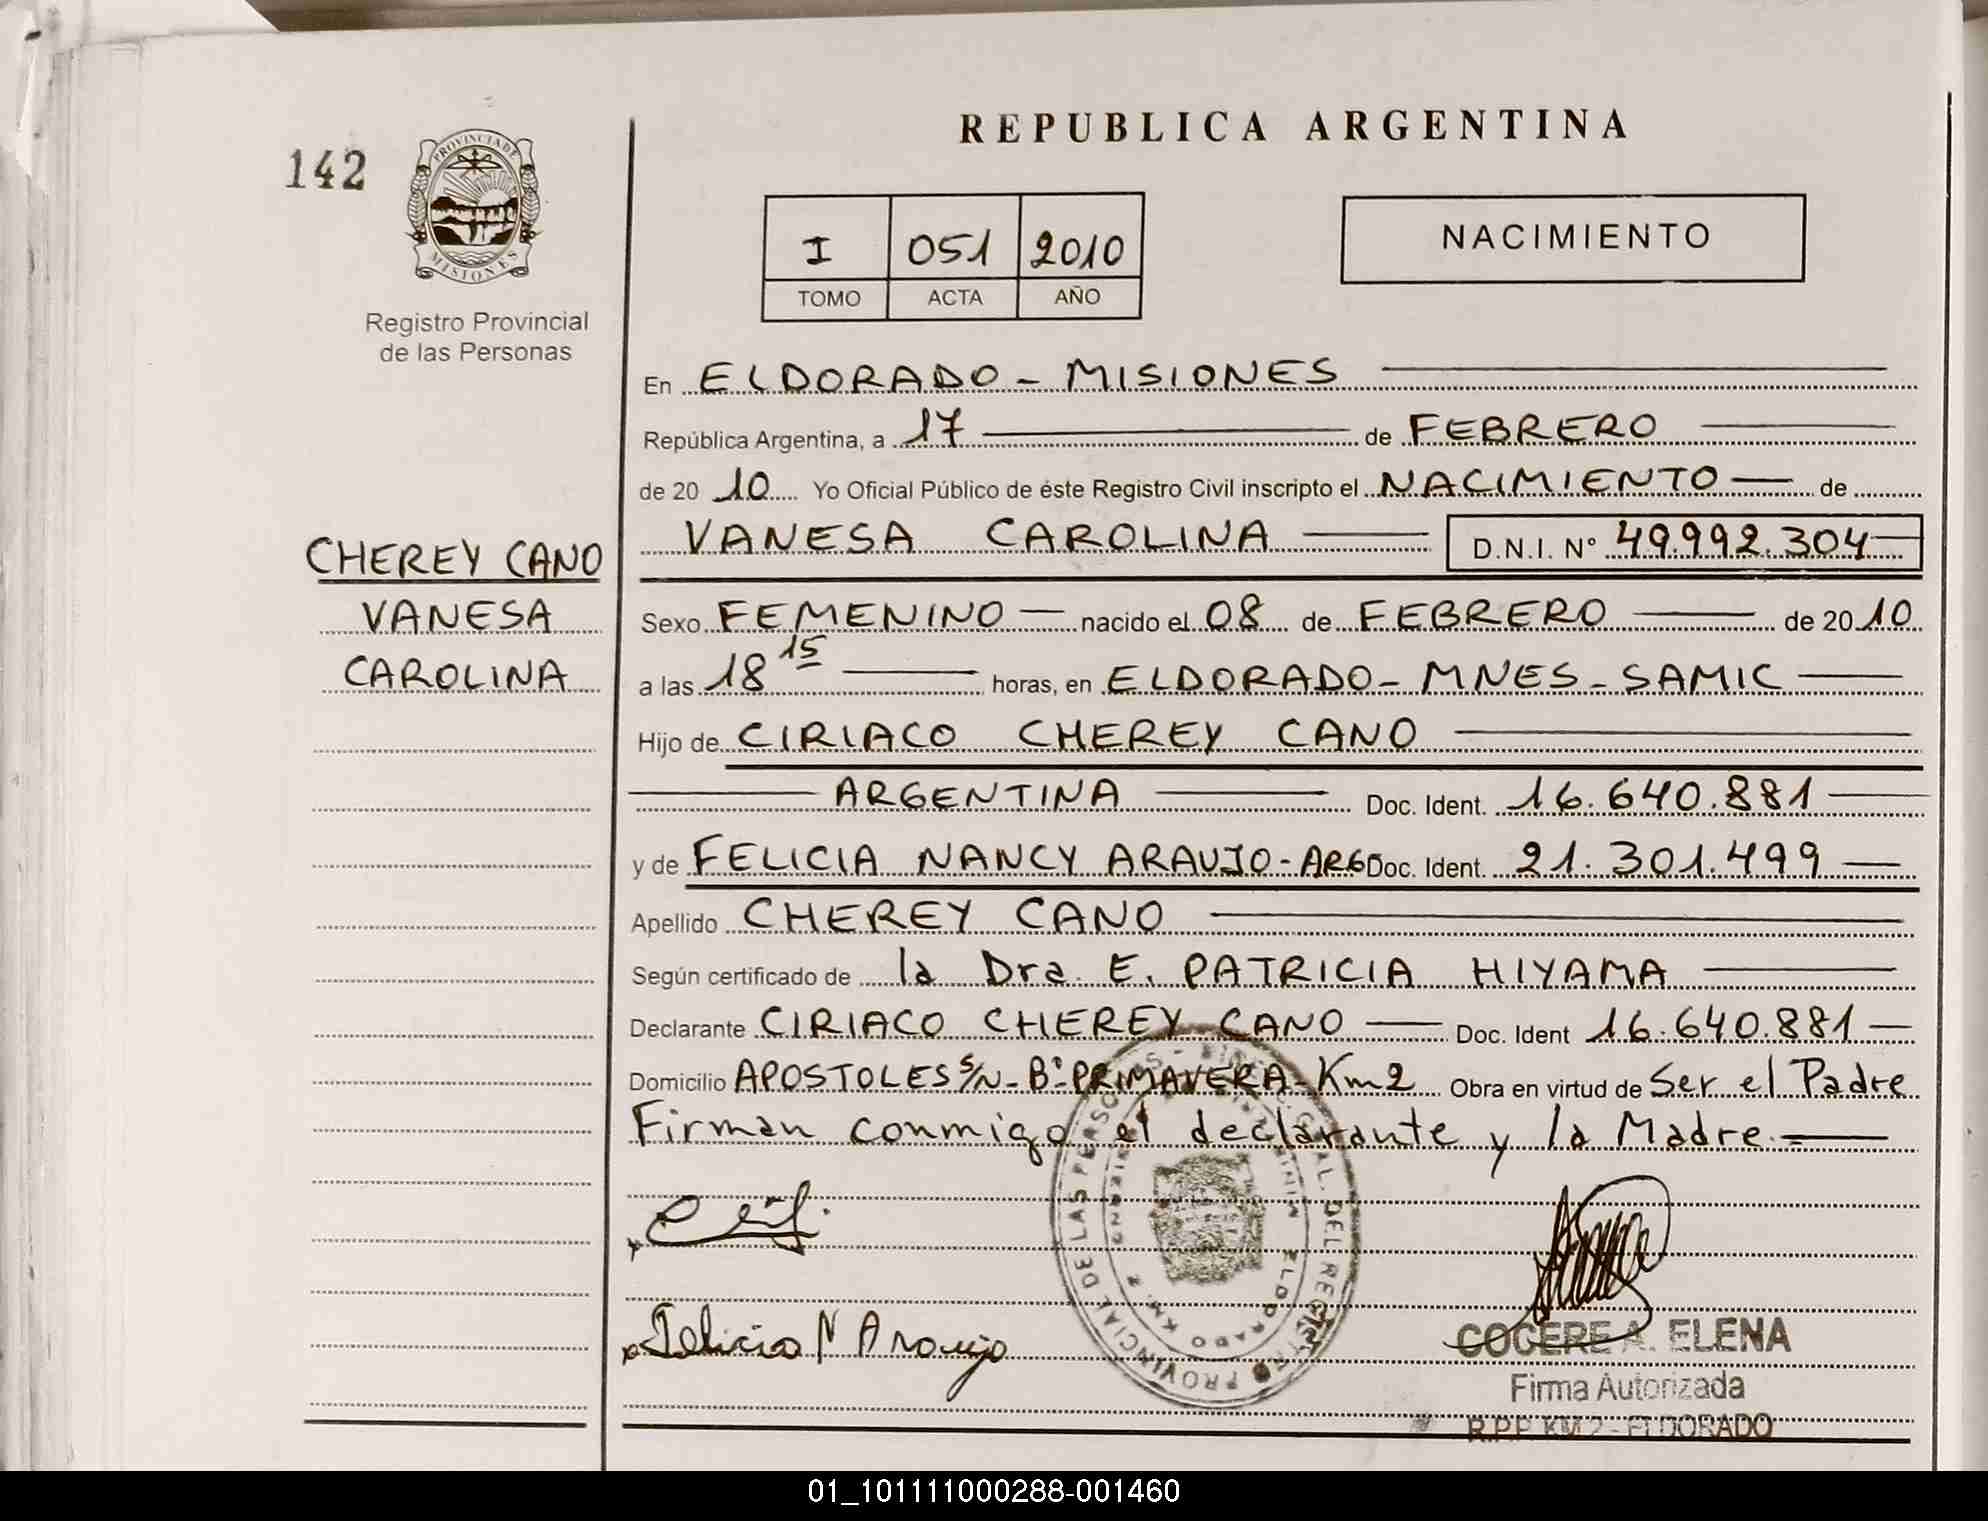 REPUBLICA ARGENTINA
142
PROVINCIA DE
MISIONES
Registro Provincial
de las Personas
I 051 2010
TOMO ACTA AÑO
NACIMIENTO
En ELDORADO - MISIONES
República Argentina, a 17 de FEBRERO
de 20 10 Yo Oficial Público de éste Registro Civil inscripto el NACIMIENTO de
VANESA CAROLINA D.N.I. Nº 49.992.304
CHEREY CANO
VANESA
CAROLINA
Sexo FEMENINO nacido el 08 de FEBRERO de 20 10
a las 18 15 horas, en ELDORADO - MNES - SAMIC
Hijo de CIRIACO CHEREY CANO
ARGENTINA Doc. Ident. 16.640.881
y de FELICIA NANCY ARAUJO - ARG Doc. Ident. 21.301.499
Apellido CHEREY CANO
Según certificado de la Dra. E. PATRICIA HIYAMA
Declarante CIRIACO CHEREY CANO Doc. Ident 16.640.881
Domicilio APOSTOLES S/N - Bº PRIMAVERA - Km2 Obra en virtud de Ser el Padre
Firman conmigo el declarante y la Madre.
PROVINCIAL DE LAS PERSONAS
GRAL. DEL REGISTRO
ELDORADO KM. 2
Felicia N Araujo
COCERE A. ELENA
Firma Autorizada
R.P.P. KM 2 - ELDORADO
01_101111000288-001460